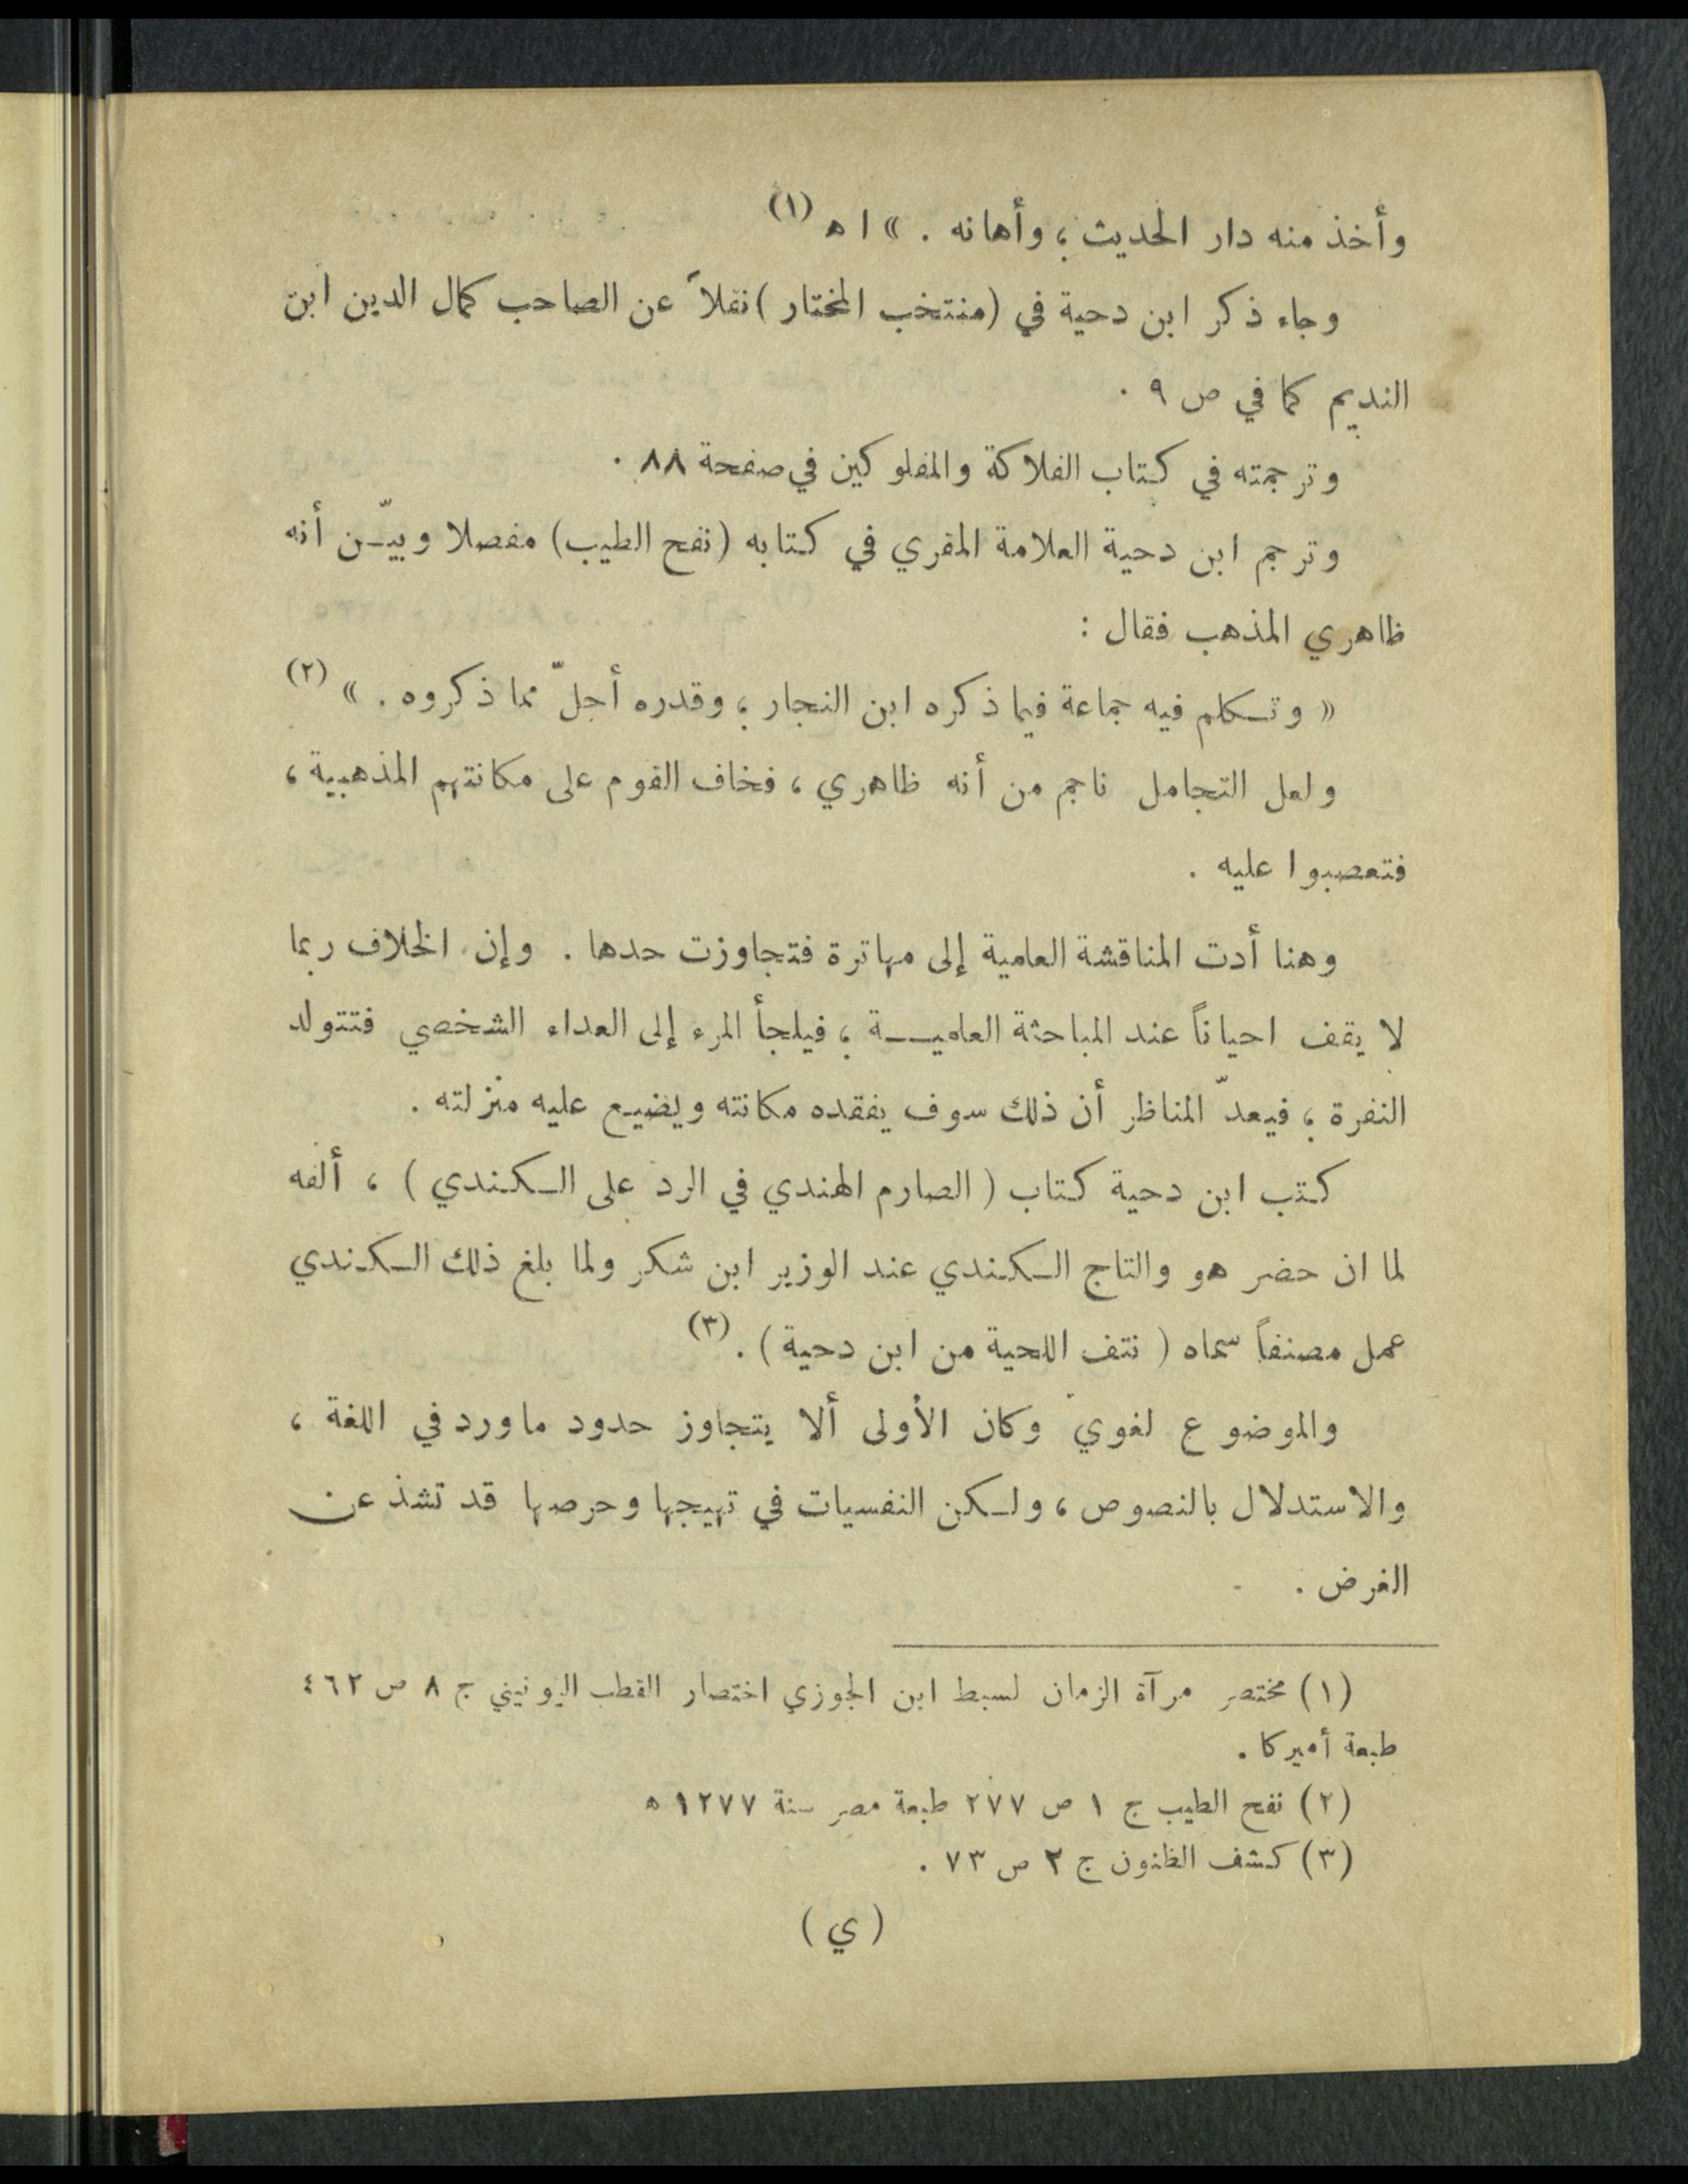 وأخذ منه دار الحديث ؛ وأهانه . » ا ه (١)
وجاء ذكر ابن دحية في (منتخب المختار) نقلاً عن الصاحب كمال الدين ابن
النديم كما في ص ٩ .
وترجمته في كتاب الفلاكة والمفلوكين في صفحة ٨٨ .
وترجم ابن دحية العلامة المقري في كتابه (نفح الطيب) مفصلا وبيّن أنه
ظاهري المذهب فقال :
« وتكلم فيه جماعة فيما ذكره ابن النجار ؛ وقدره أجلّ مما ذكروه . » (٢)
ولعل التحامل ناجم من أنه ظاهري ، فخاف القوم على مكانتهم المذهبية ،
فتعصبوا عليه .
وهنا أدت المناقشة العلمية إلى مهاترة فتجاوزت حدها . وإن الخلاف ربما
لا يقف احياناً عند المباحثة العلمية ؛ فيلجأ المرء إلى العداء الشخصي فتتولد
النفرة ؛ فيعدّ المناظر أن ذلك سوف يفقده مكانته ويضيع عليه منزلته .
كتب ابن دحية كتاب ( الصارم الهندي في الرد على الكندي ) ، ألفه
لما ان حضر هو والتاج الكندي عند الوزير ابن شكر ولما بلغ ذلك الكندي
عمل مصنفاً سماه ( نتف اللحية من ابن دحية ) . (٣)
والموضوع لغوي وكان الأولى ألا يتجاوز حدود ما ورد في اللغة ،
والاستدلال بالنصوص ، ولكن النفسيات في تهيجها وحرصها قد تشذ عن
الغرض .
(١) مختصر مرآة الزمان لسبط ابن الجوزي اختصار القطب اليونيني ج ٨ ص ٤٦٢
طبعة أميركا .
(٢) نفح الطيب ج ١ ص ٢٧٧ طبعة مصر سنة ١٢٧٧ ه
(٣) كشف الظنون ج ٢ ص ٧٣ .
( ي )